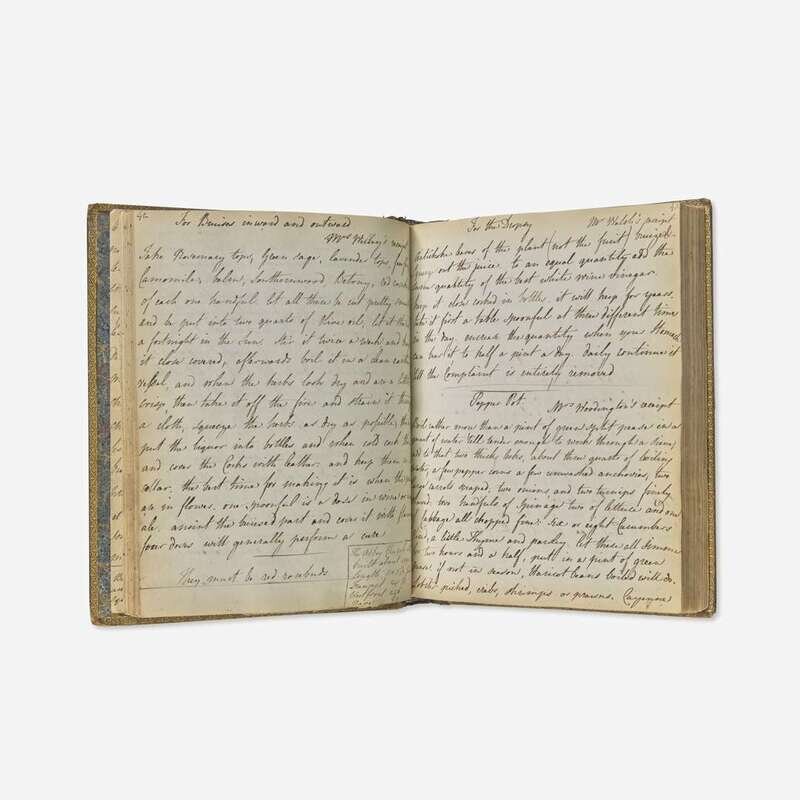 For Bruises inward and outward
Mrs receipt
Take Rosemary tops, Green sage, lavender tops,
Camomile, balm, Southernwood Betony, red
of each one handful. let all these be cut pretty small
and be put into two quarts of Olive oil, let it
a fortnight in the sun. Stir it twice a week and
it close covered, afterwards boil it in a clean
vessel, and when the herbs look dry and are a little
crisp, then take it off the fire and strain it thro
a cloth, squeeze the herbs as dry as possible, then
put the liquor into bottles and when cold cork them
and cover the Corks with leather: and keep them in a
cellar: the best time for making it is when the
are in flower. one Spoonful is a dose in wine or
ale. anoint the bruised part and cover it with
four doses will generally perform a cure
They must be red rosebuds
The Abbey Church
built about
length
For the Dropsy
Mr Walsh's receipt
Artichoke leaves of the plant (not the fruit) bruized.
squeeze out the juice. to an equal quantity add the
same quantity of the best white wine Vinegar.
keep it close corked in bottles, it will keep for years.
take it first a table spoonful at three different times
in the day. encrease the quantity when your Stomach
can bear it to half a pint a day. daily continue it
till the Complaint is entirely removed
Pepper Pot.
Mrs Woodington's receipt
Boil rather more than a pint of green split pease in a
quart of water till tender enough to work through a
to that two thick, about three quarts of boiling
water, a few pepper corns a few unwashed anchovies, two
carrots scraped, two onions, and two turnips finely
two handfuls of Spinage two of lettuce and one
Cabbage all chopped fine: Six or eight Cucumbers
a little Thyme and parsley. let these all simmer
for two hours and a half, put in a pint of green
pease if not in season, Haricot beans boiled will do.
lobster picked, crabs, shrimps or prawns. Cayenne